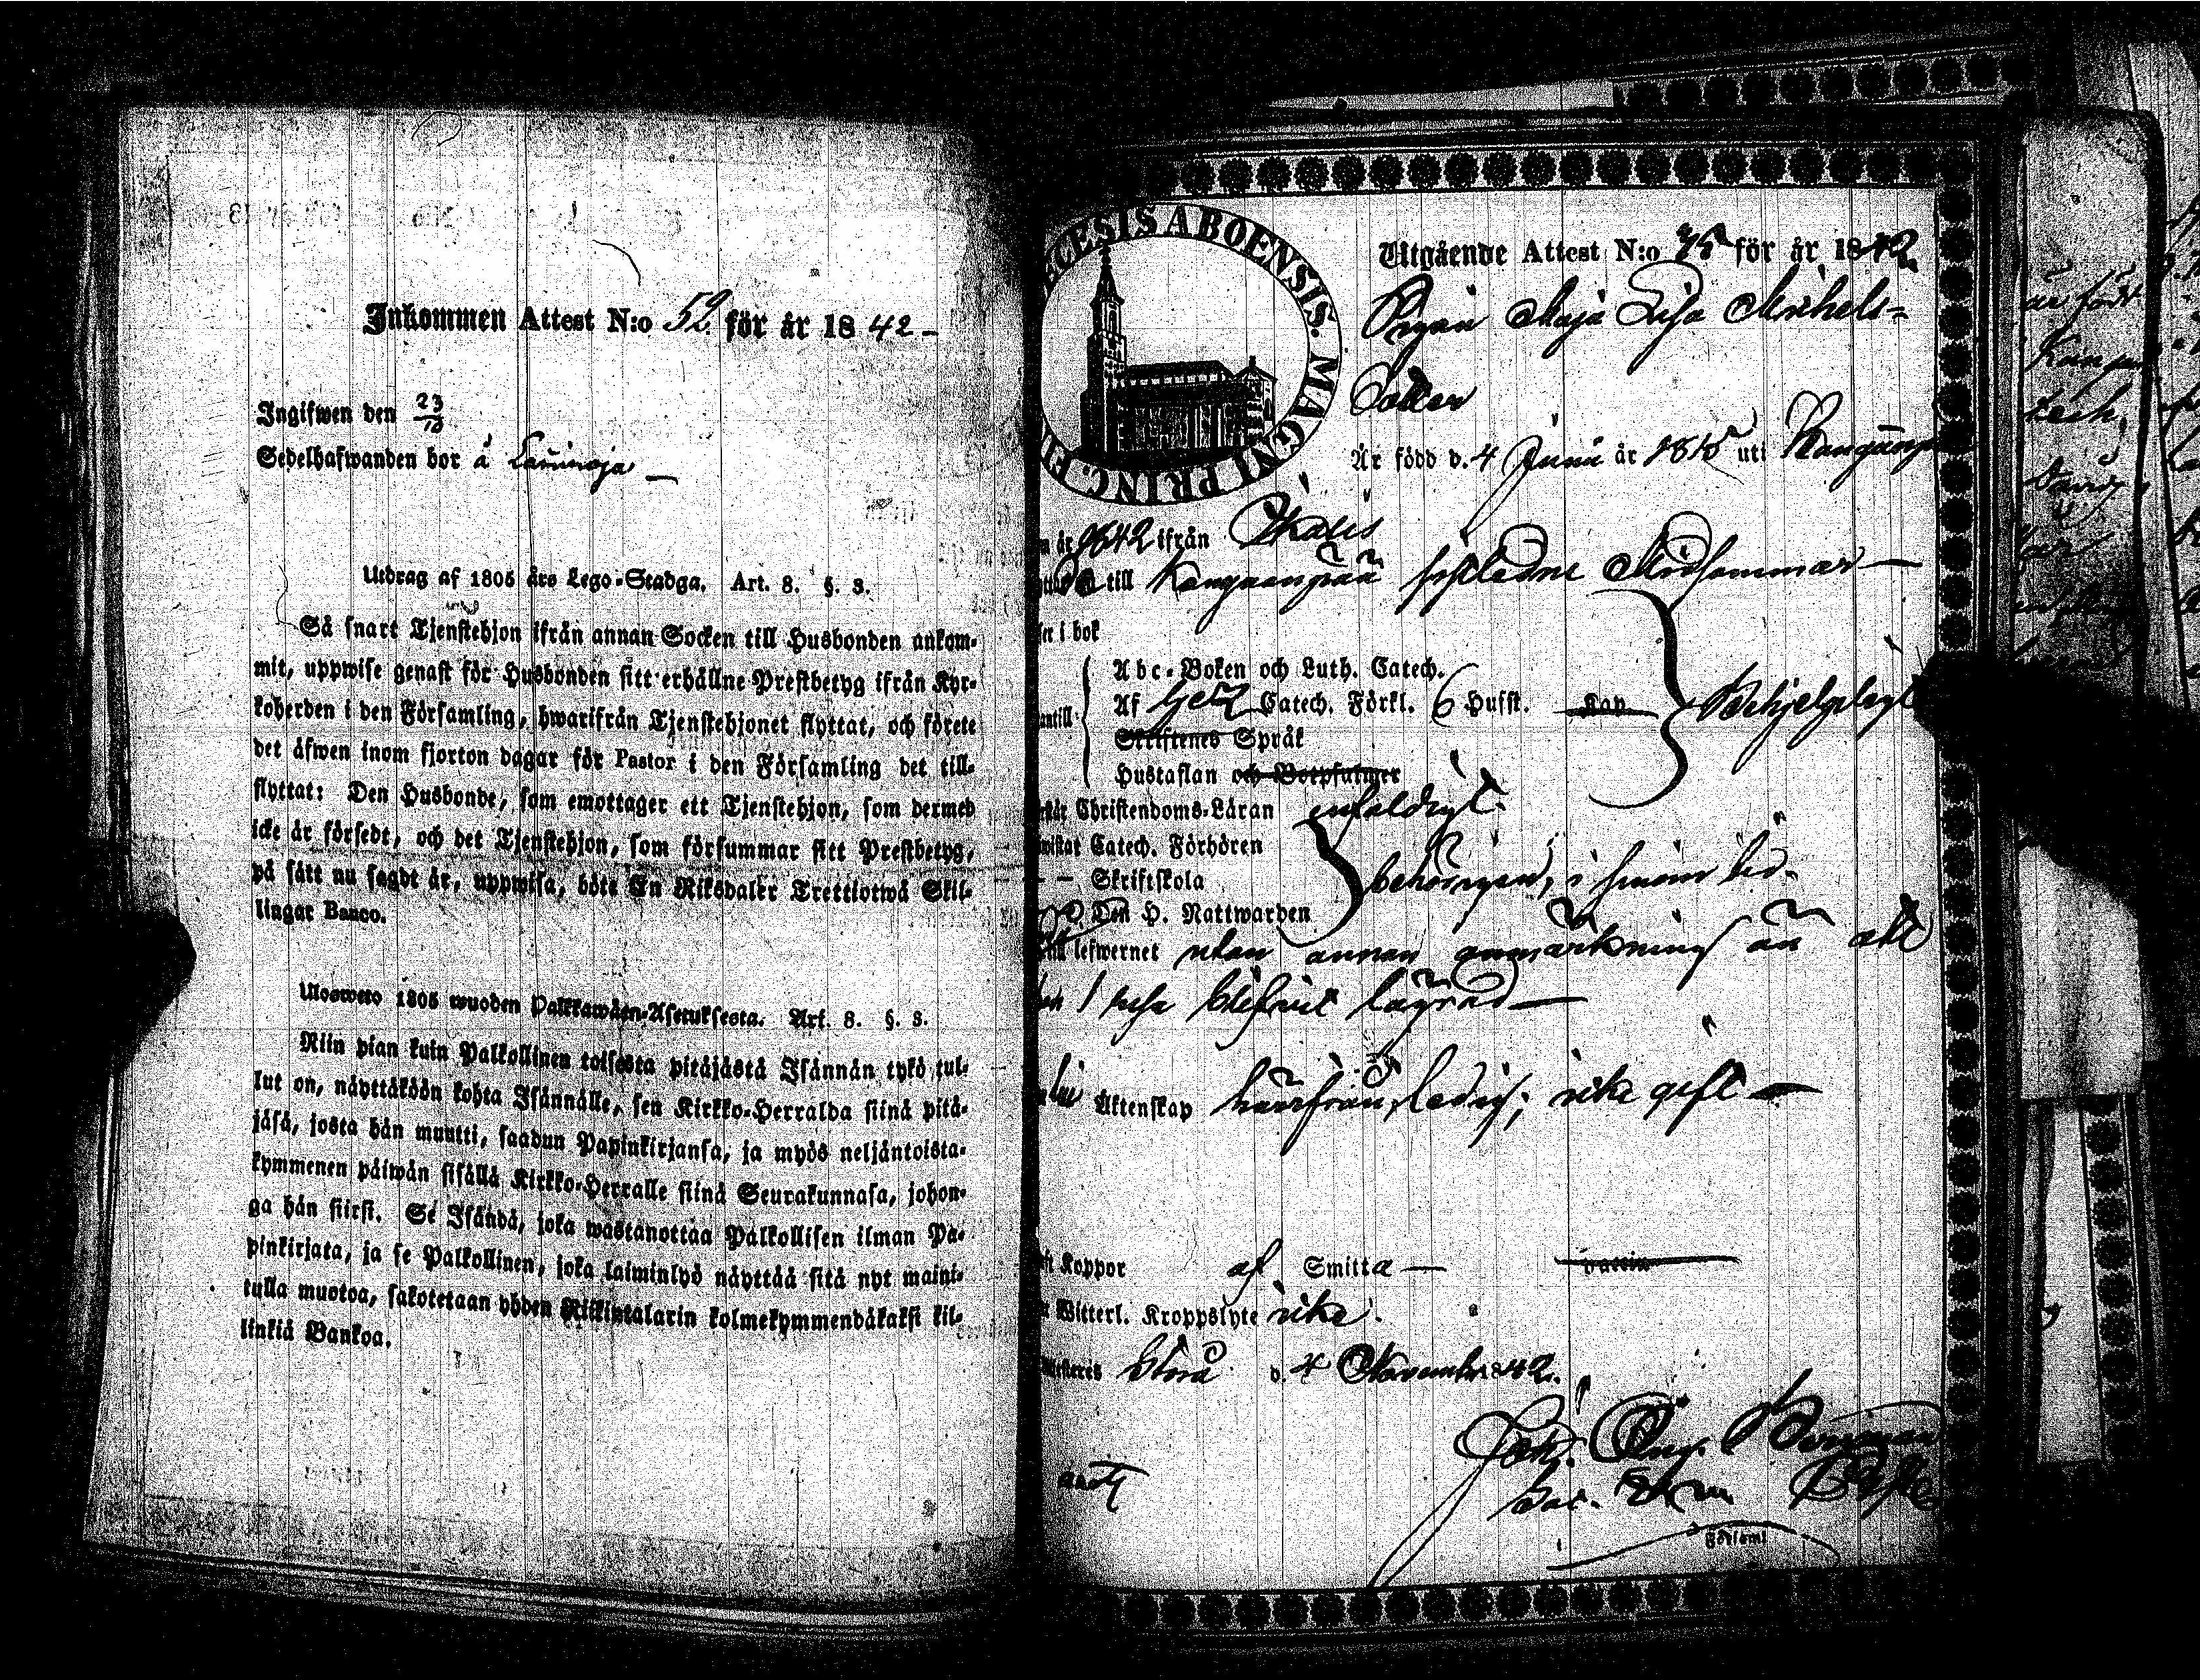 Inkommen Attest N:o 52. för år 1842 –
Ingifwen den 23/10
Sedelhafwanden bor å
Utdrag af 1805 års Lego-Stadga. Art. 8. §. 3.
Så snart Tjenstehjon ifrån annan Socken till Husbonden ankom-
mit, uppwise genast för Husbonden sitt erhållne Prestbetyg ifrån Kyr-
koherden i den Församling, hwarifrån Tjenstehjonet flyttat, och förete
det äfwen inom fjorton dagar för Pastor i den Församling det till-
flyttat: Den Husbonde, som emottager ett Tjenstehjon, som dermed
icke är försedt, och det Tjenstehjon, som försummar sitt Prestbetyg,
på sätt nu sagdt är, uppwisa, böte En Riksdaler Trettiotwå Skil-
lingar Banco.
Ulosweto 1805 wuoden Palkkawäen-Asetuksesta. Art. 8. §. 3.
Niin pian kuin Palkollinen toisesta pitäjästä Isännän tykö tul-
lut on, näyttäköön kohta Isännälle, sen Kirkko-Herralda siinä pitä-
jäsä, josta hän muutti, saadun Papinkirjansa, ja myös neljäntoista-
kymmenen päiwän sisällä Kirkko-Herralle siinä Seurakunnasa, johon-
ga hän siirsi. Se Isändä, joka wastanottaa Palkollisen ilman Pa-
pinkirjata, ja se Palkollinen, joka laiminlyö näyttää sitä nyt maini-
tulla muotoa, sakotetaan yhden Riikintalarin kolmekymmendäkaksi kil-
linkiä Bankoa.
ECESIS ABOENSIS. MAGNI PRINC. FI
Utgående Attest N:o 75 för år 1842
Pigan Maja Lisa Michels-
Dotter
Är född d. 4 Junii år 1815 uti
år 1842 ifrån
till Kangaanpää sistledne Midsommar –
i bok
Abc-Boken och Luth. Catech.
Af Catech. Förkl. Husst. Kap
Skriftenes Språk
Hustaflan och Botpsalmer
Behjelpligt
Christendoms-Läran enfaldigt.
Catech. Förhören
– – Skriftskola
Den H. Nattwarden
behörigen, i sinom tid.
lefwernet utan annan anmärkning än att
1 resa blifvit lägrad –
Äktenskap härifrån, ledig; icke gift –
Koppor af Smitta – Vaccin
Witterl. Kroppslyte icke.
d. 4 November 1842.
Joh.
Församl